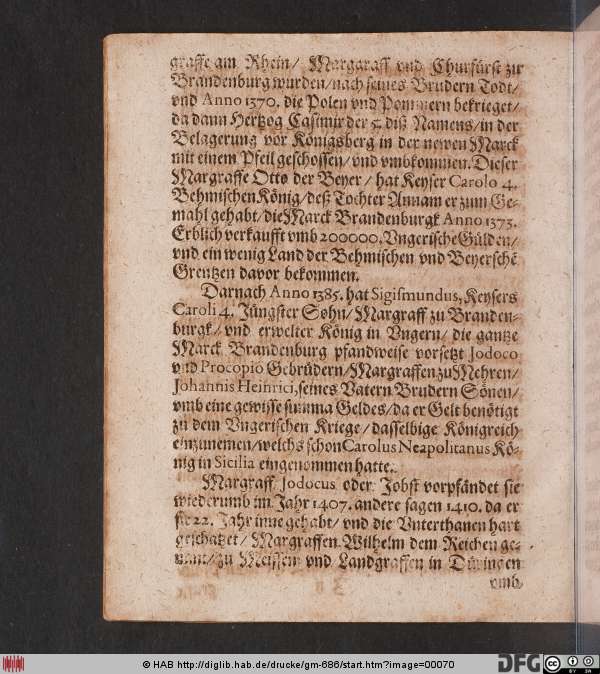 graffe am Rhein/ Margaraff vnd Churfürst zu
Brandenburg wurden/ nach seines Brudern Todt/
vnd Anno 1370. die Polen vnd Pommern bekrieget/
da dann Hertzog Casimir der 5. diß Namens/ in der
Belagerung vor Königsberg in der newen Marck
mit einem Pfeil geschossen/ vnd vmbkommen. Dieser
Margraffe Otto der Beyer/ hat Keyser Carolo 4.
Behmischen König/ deß Tochter Annam er zum Ge-
mahl gehabt/ die Marck Brandenburgk Anno 1373.
Erblich verkaufft vmb 200000. Vngerische Gülden/
vnd ein wenig Land der Behmischen vnd Beyerschē
Grentzen davor bekommen.
Darnach Anno 1385. hat Sigismundus, Keysers
Caroli 4. Jüngster Sohn/ Margraff zu Branden-
burgk/ vnd erwelter König in Vngern/ die gantze
Marck Brandenburg pfandweise vorsetzt Jodoco
vnd Procopio Gebrüdern/ Margraffen zu Mehren/
Johannis Heinrici, seines Vatern Brudern Sönen/
vmb eine gewisse summa Geldes/ da er Gelt benötigt
zu dem Vngerischen Kriege/ dasselbige Königreich
einzunemen/ welchs schon Carolus Neapolitanus Kö-
nig in Sicilia eingenommen hatte.
Margraff Jodocus oder Jobst vorpfändet sie
wiederumb im Jahr 1407. andere sagen 1410. da er
sie 22. Jahr inne gehabt/ vnd die Vnterthanen hart
geschatzet/ Margraffen Wilhelm dem Reichen ge-
nant/ zu Meissen vnd Landgraffen in Düringen
vmb
© HAB http://diglib.hab.de/drucke/gm-686/start.htm?image=00070
DFG
cc BY SA